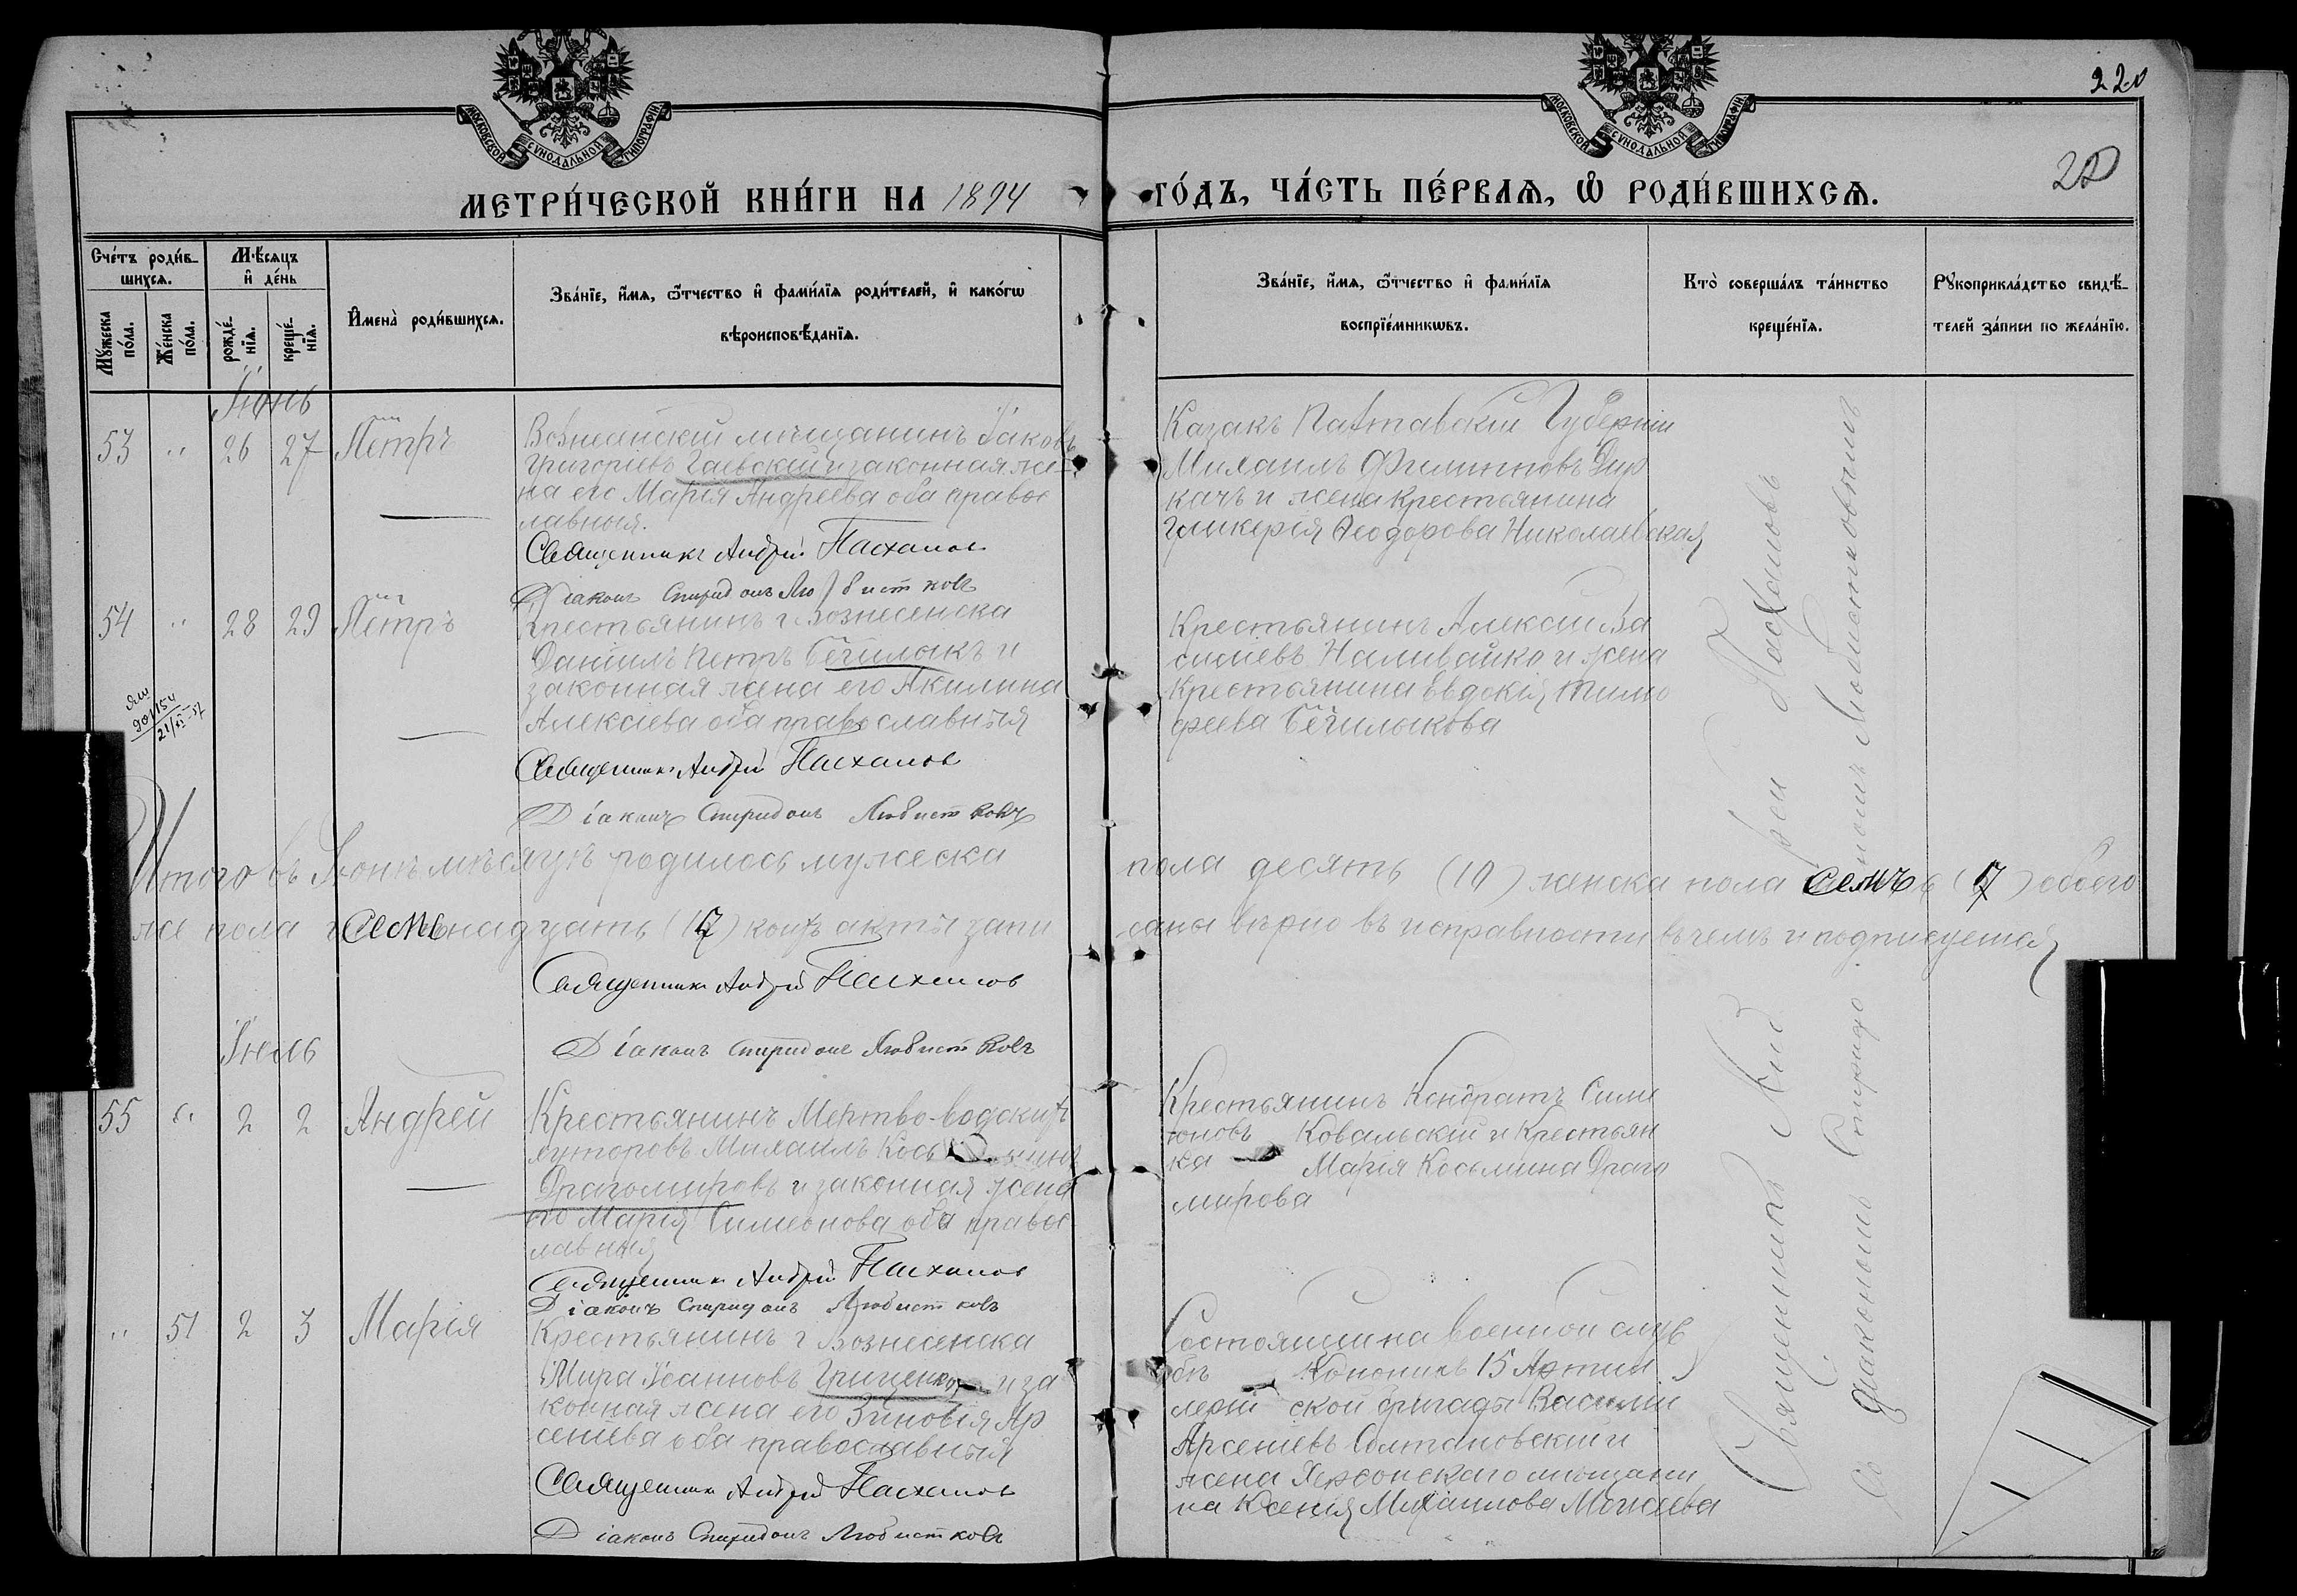 МОСКОВСКОЙ СѴНОДАЛЬНОЙ ТИПОГРАФІИ
МОСКОВСКОЙ СѴНОДАЛЬНОЙ ТИПОГРАФІИ
220
220
МЕТРИ́ЧЕСКОЙ КНИ́ГИ НА 1894 ГО́ДЪ, ЧА́СТЬ ПЕ́РВАѦ, Ѡ҆ РОДИ́ВШИХСѦ.
Сче́тъ роди́в-
шихсѧ.
Мꙋ́жеска по́ла.
Же́нска по́ла.
Мѣ́сѧцъ
и҆ де́нь
рожде́-
нїѧ.
креще́-
нїѧ.
И҆мена̀ роди́вшихсѧ.
Зва́нїе, и҆́мѧ, ѻ҆́тчество и҆ фами́лїѧ роди́телей, и҆ како́гѡ
вѣроисповѣ́данїѧ.
Зва́нїе, и҆́мѧ, ѻ҆́тчество и҆ фами́лїѧ
воспрїе́мникѡвъ.
Кто̀ соверша́лъ та́инство
креще́нїѧ.
Рꙋкоприкла́дство свидѣ́-
телей за́писи по жела́нїю.
Іюнь
53 " 26 27 Петръ
Вознесенскій мѣщанинъ Іаковъ
Григоріевъ Гаевскій и законная же-
на его Марія Андреева оба правос
лавныя.
Священникъ Андрей Пасхалов
Діаконъ Спиридонъ Любистковъ
Казакъ Полтавской Губерніи
Михаилъ Филипповъ Дир
качъ и жена Крестьянина
Гликерія Ѳеодорова Николаевская
54 " 28 29 Петръ
Крестьянинъ г Вознесенска
Даніилъ Петръ Бечилыкъ и
законная жена его Акилина
Алексиева оба православныя
Священникъ Андрей Пасхалов
Діаконъ Спиридонъ Любистковъ
Крестьянинъ Алексій Ва
силіевъ Наливайко и жена
Крестьянина Евдокія Тимо
феева Бечилыкова
21/XI-57
Итого въ Іюнѣ мѣсяцѣ родилось мужеска пола десять (10) женска пола семь (7) обоего
же пола семьнадцать (17) коихъ акты запи саны вѣрно въ исправности въ чемъ и подписуемся
Священникъ Андрей Пасхалов
Діаконъ Спиридонъ Любистковъ
Іюль
55 " 2 2 Андрей
Крестьянинъ Мертво-водскихъ
хуторовъ Михаилъ Косьминъ
Драгомировъ и законная жена
его Марія Симеонова оба правос
лавныя
Священникъ Андрей Пасхалов
Діаконъ Спиридонъ Любистковъ
Крестьянинъ Кондратъ Симе
оновъ Ковальскій и Крестьян
ка Марія Косьмина Драго
мирова
" 51 2 3 Марія
Крестьянинъ г Вознесенска
Мира Іоанновъ Гриценко и за
конная жена его Зиновія Ар
сеніева оба православныя
Священникъ Андрей Пасхалов
Діаконъ Спиридонъ Любистковъ
Состоящій на Военной служ
бѣ Кононикъ 15 Артил
лерій ской бригады Василій
Арсеніевъ Солтановскій и
жена Херсонскаго мѣщани
на Ксенія Михаилова Можаева
Священникъ Андрей Пасхаловъ
Съ діакономъ Спиридономъ Любистковымъ